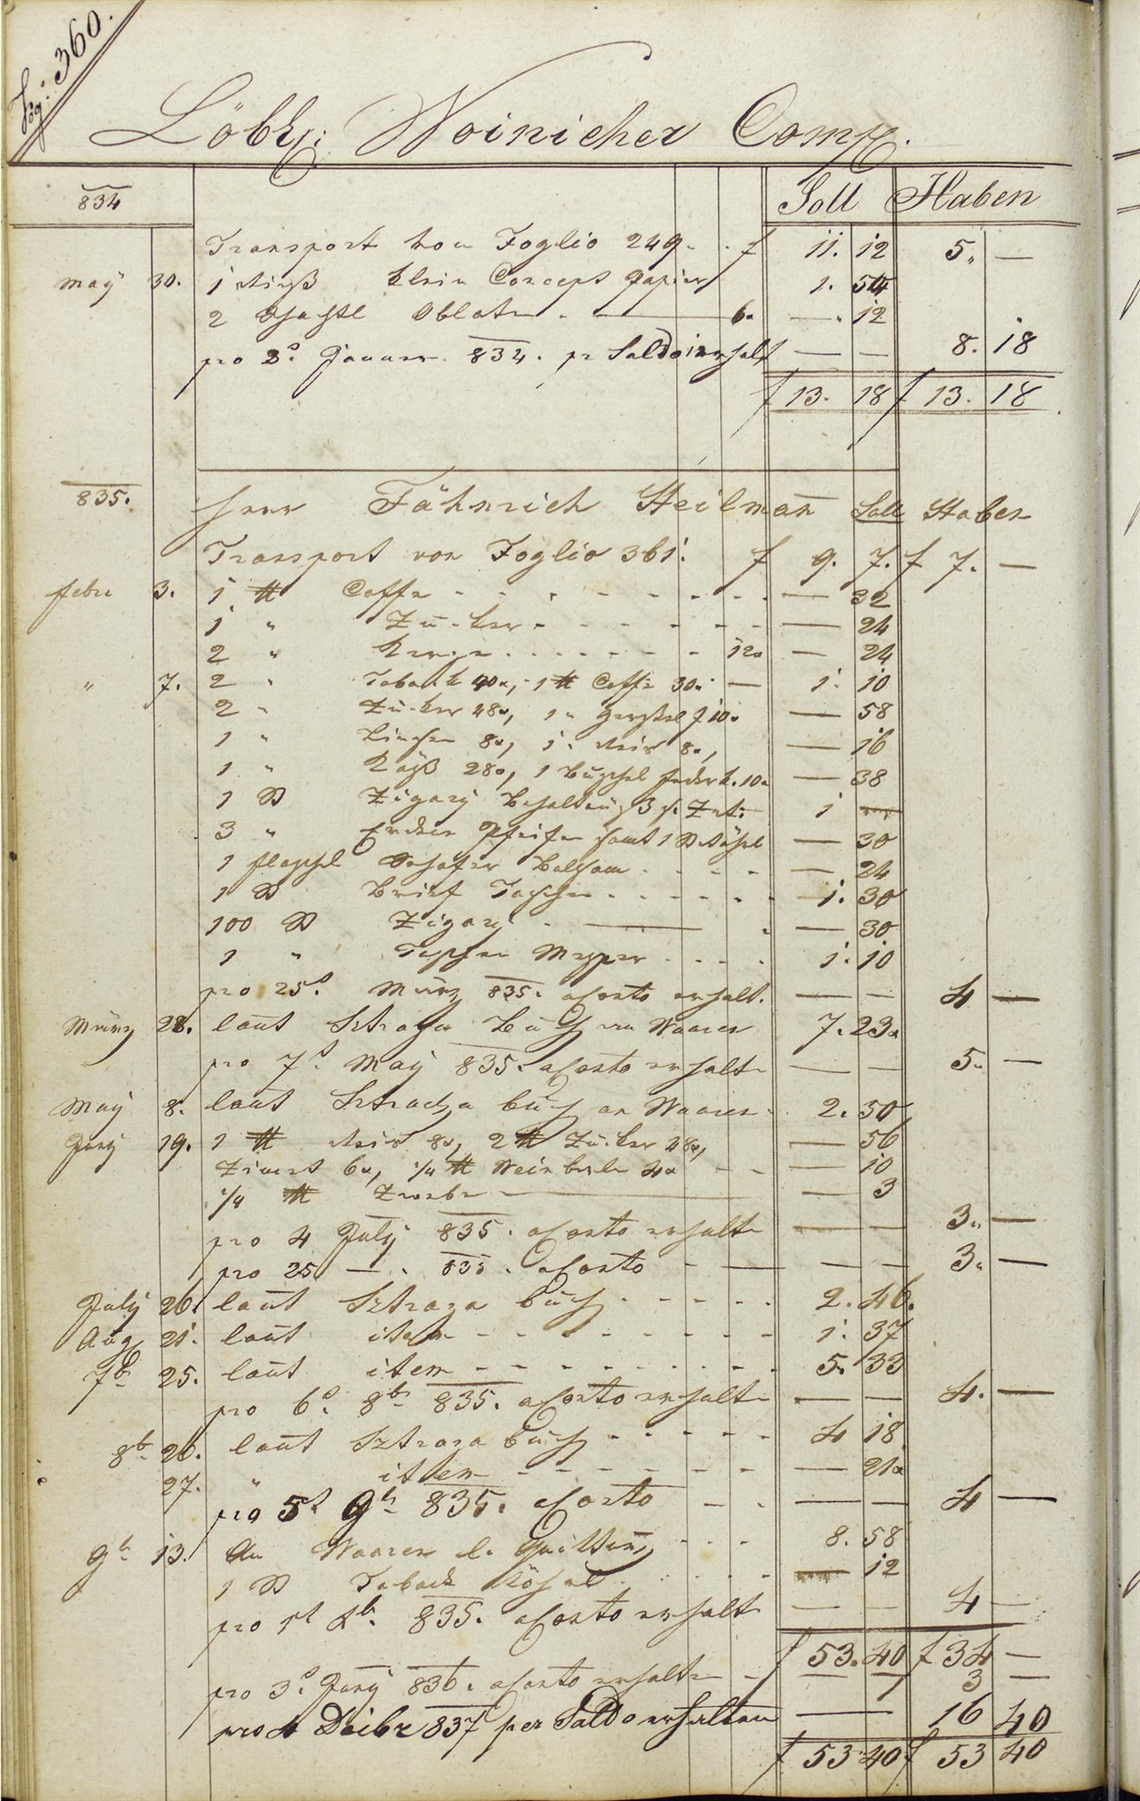 Fog: 360.
Löbl: Woinicher Comp.
834 Soll Haben
Transport von Foglio 249. f 11. 12 5. —
May 30. 1 Rieß klein Concept Papier 1. 54
2 Schachtl Oblaten — 6x — 12
pro 2d. Januar 834. pr Saldo erhalt — — 8. 18
f 13. 18 f 13. 18
835. Herr Fähnrich Heilman Soll Haben
Transport von Foglio 361. f 9. 7. f 7. —
febr 3. 1 ℔ Caffe — 32
1 " Zucker — 24
2 " 12x — 24
" 7. 2 " Taback 40x, 1 ℔ Caffe 30x — 1. 10
2 " Zucker 48x, 1 " 10x — 58
1 " Linsen 8x, 1 " Reis 8x, — 16
1 " Käß 28x, 1 Büschel federk. 10x — 38
1 St Zigary 1 —
3 " Pfeifen samt 1 St — 30
1 flaschl Balsam — 24
1 St Brief Taschen 1. 30
100 St Zigary — 30
1 " Taschen Messer 1. 10
pro 25t. März 835. a Conto erhalt. — — 4 —
März 28. laut Sztrazza Buch an Waaren 7. 23x
pro 7t. May 835. a Conto erhalt — — 5. —
May 8. laut Sztrazza buch an Waaren 2. 50
Juny 19. 1 ℔ Reis 8x, 2 ℔ Zucker 48x, — 56
Zimmt 6x, 1/4 ℔ Weinberln 4x — 10
1/4 ℔ — 3
pro 4 July 835. a Conto erhalt — — 3. —
pro 25 — . 835. a Conto — — 3. —
July 26. laut Sztrazza buch 2. 46.
Aug 21. laut item 1. 37
7b 25. laut item 5. 33
pro 6t. 8br 835. a Conto erhalt — — 4. —
8b 26. laut Sztrazza buch 4 18
27. " item — 21x
pro 5t 9br 835. a Conto — — 4 —
9b 13. An Waaren l. Quittung 8. 58
1 St Taback — 12
pro 1t 835. a Conto erhalt — — 4 —
f 53. 40 f 34 —
pro 3t. Juny 836. a Conto erhalten — — 3 —
pro 4 Dcibr 837 per Saldo erhalten — 16 40
f 53 40 f 53 40